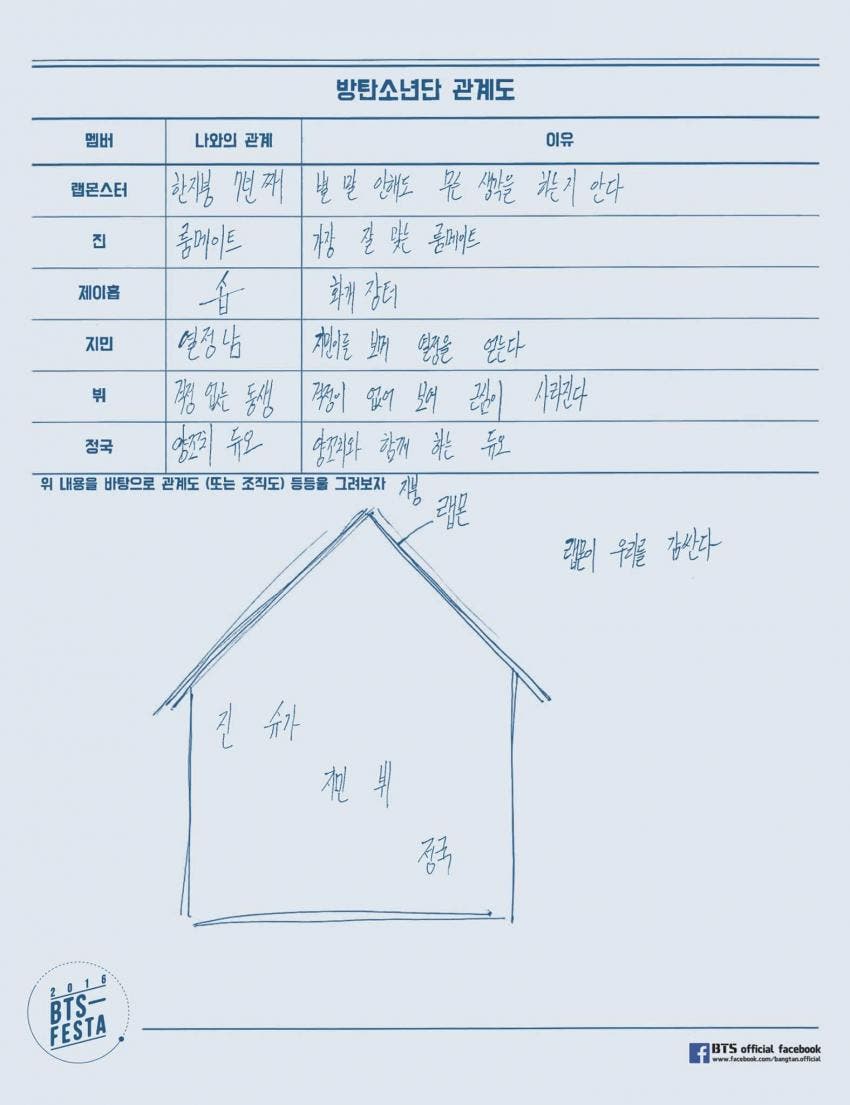 방탄소년단 관계도
멤버 나와의 관계 이유
랩몬스터 한지붕 7년 째 별 말 안해도 무슨 생각을 하는지 안다
진 룸메이트 가장 잘 맞는 룸메이트
제이홉 솝 화개 장터
지민 열정남 지민이를 보며 열정을 얻는다
뷔 걱정 없는 동생 걱정이 없어 보여 근심이 사라진다
정국 양조치 듀오 양조치와 함께 하는 듀오
위 내용을 바탕으로 관계도 (또는 조직도) 등등을 그려보자
지붕
랩몬
랩몬이 우리를 감싼다
진 슈가
지민 뷔
정국
2016
BTS
FESTA
BTS official facebook
www.facebook.com/bangtan.official